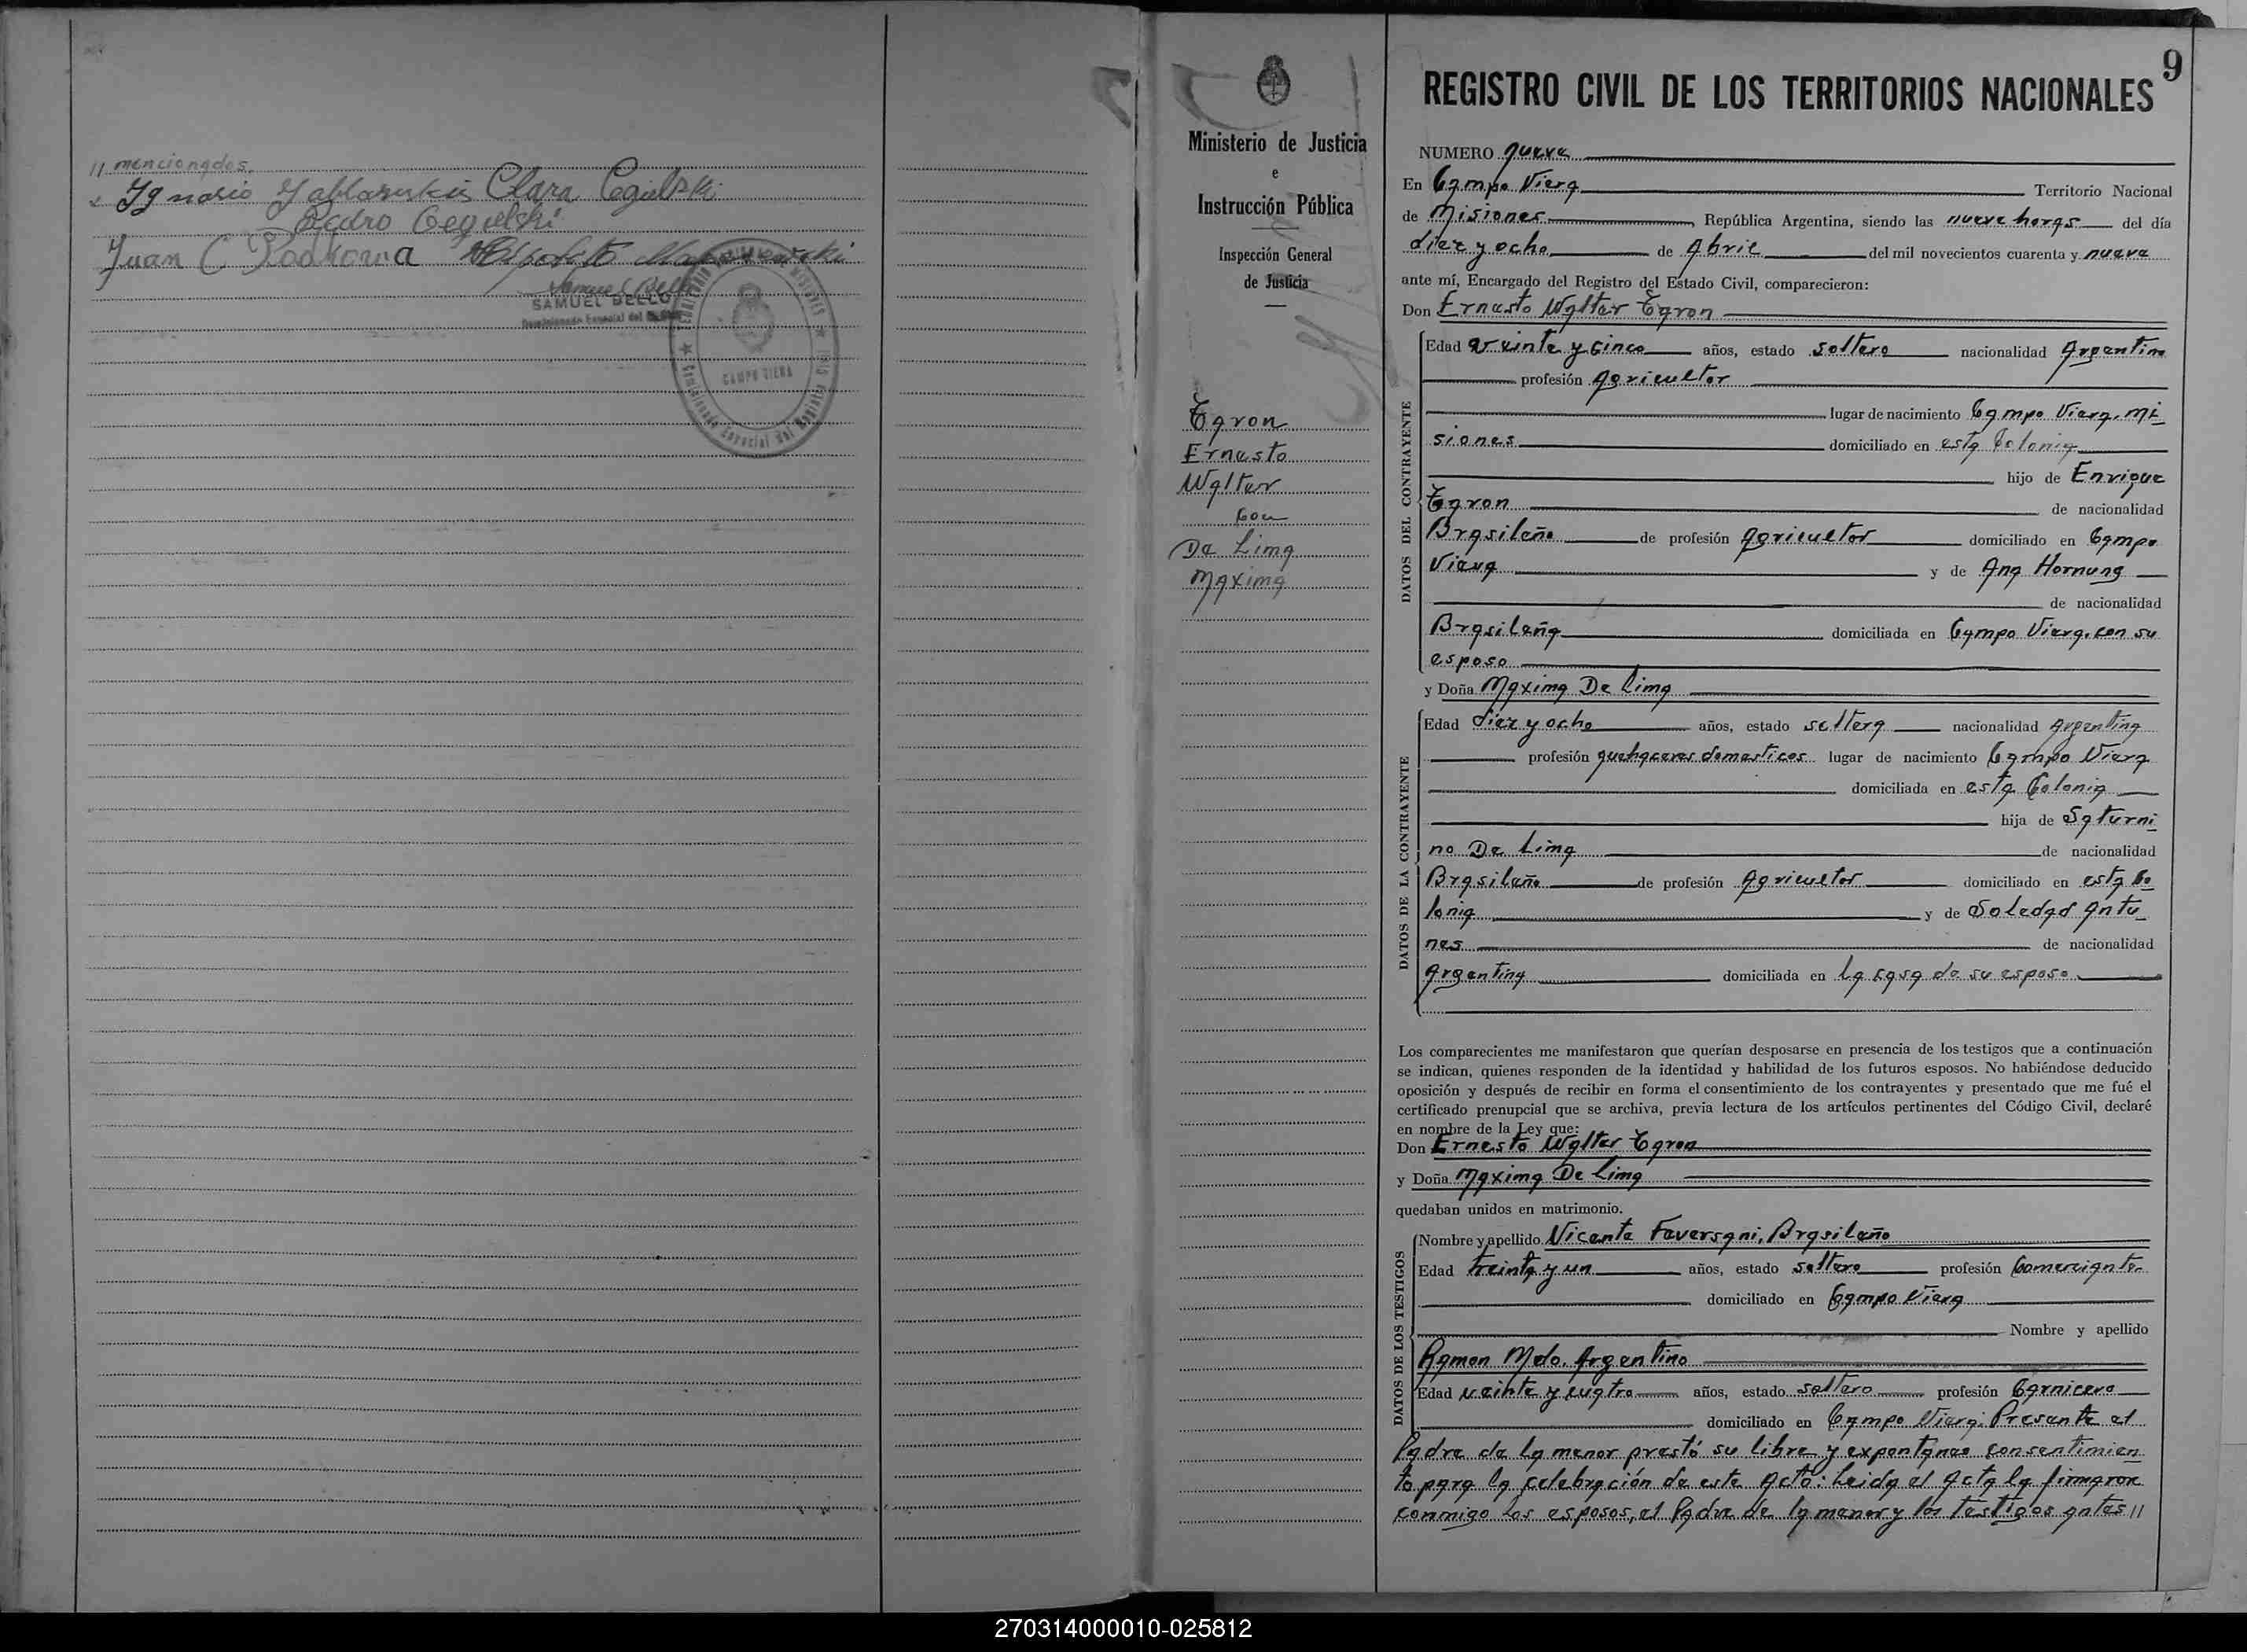 // mencionados.
Ignacio Clara Cegielski
Pedro Cegielski
Juan C
Samuel Bello
SAMUEL BELLO
Comisionado Especial del
CAMPO VIERA
Comisionado Especial del Registro
9
Ministerio de Justicia
e
Instrucción Pública
Inspección General
de Justicia
Caron
Ernesto
Walter
con
De Lima
Maxima
REGISTRO CIVIL DE LOS TERRITORIOS NACIONALES
NUMERO nueve
En Campo Viera Territorio Nacional
de Misiones, República Argentina, siendo las nueve horas del día
diez y ocho de Abril del mil novecientos cuarenta y nueve
ante mí, Encargado del Registro del Estado Civil, comparecieron:
Don Ernesto Walter Caron
DATOS DEL CONTRAYENTE
Edad veinte y cinco años, estado soltero nacionalidad Argentino
profesión Agricultor
lugar de nacimiento Campo Viera, Mi
siones domiciliado en esta Colonia
hijo de Enrique
Caron de nacionalidad
Brasileño de profesión Agricultor domiciliado en Campo
Viera y de Ana Hornung
de nacionalidad
Brasileña domiciliada en Campo Viera, con su
esposo
y Doña Maxima De Lima
DATOS DE LA CONTRAYENTE
Edad diez y ocho años, estado soltera nacionalidad Argentina
profesión quehaceres domesticos lugar de nacimiento Campo Viera
domiciliada en esta Colonia
hija de Saturni
no De Lima de nacionalidad
Brasileño de profesión Agricultor domiciliado en esta Co
lonia y de Soledad Antu
nes de nacionalidad
Argentina domiciliada en la casa de su esposo
Los comparecientes me manifestaron que querían desposarse en presencia de los testigos que a continuación
se indican, quienes responden de la identidad y habilidad de los futuros esposos. No habiéndose deducido
oposición y después de recibir en forma el consentimiento de los contrayentes y presentado que me fué el
certificado prenupcial que se archiva, previa lectura de los artículos pertinentes del Código Civil, declaré
en nombre de la Ley que:
Don Ernesto Walter Caron
y Doña Maxima De Lima
quedaban unidos en matrimonio.
DATOS DE LOS TESTIGOS
Nombre y apellido Vicente Faversani, Brasileño
Edad treinta y un años, estado soltero profesión Comerciante
domiciliado en Campo Viera
Nombre y apellido
Ramon Melo. Argentino
Edad veinte y cuatro años, estado soltero profesión Carnicero
domiciliado en Campo Viera. Presente el
Padre de la menor prestó su libre y expontaneo consentimien
to para la celebración de este Acto: Leida el Acta la firmaron
conmigo los esposos, el Padre de la menor y los testigos antes //
270314000010-025812